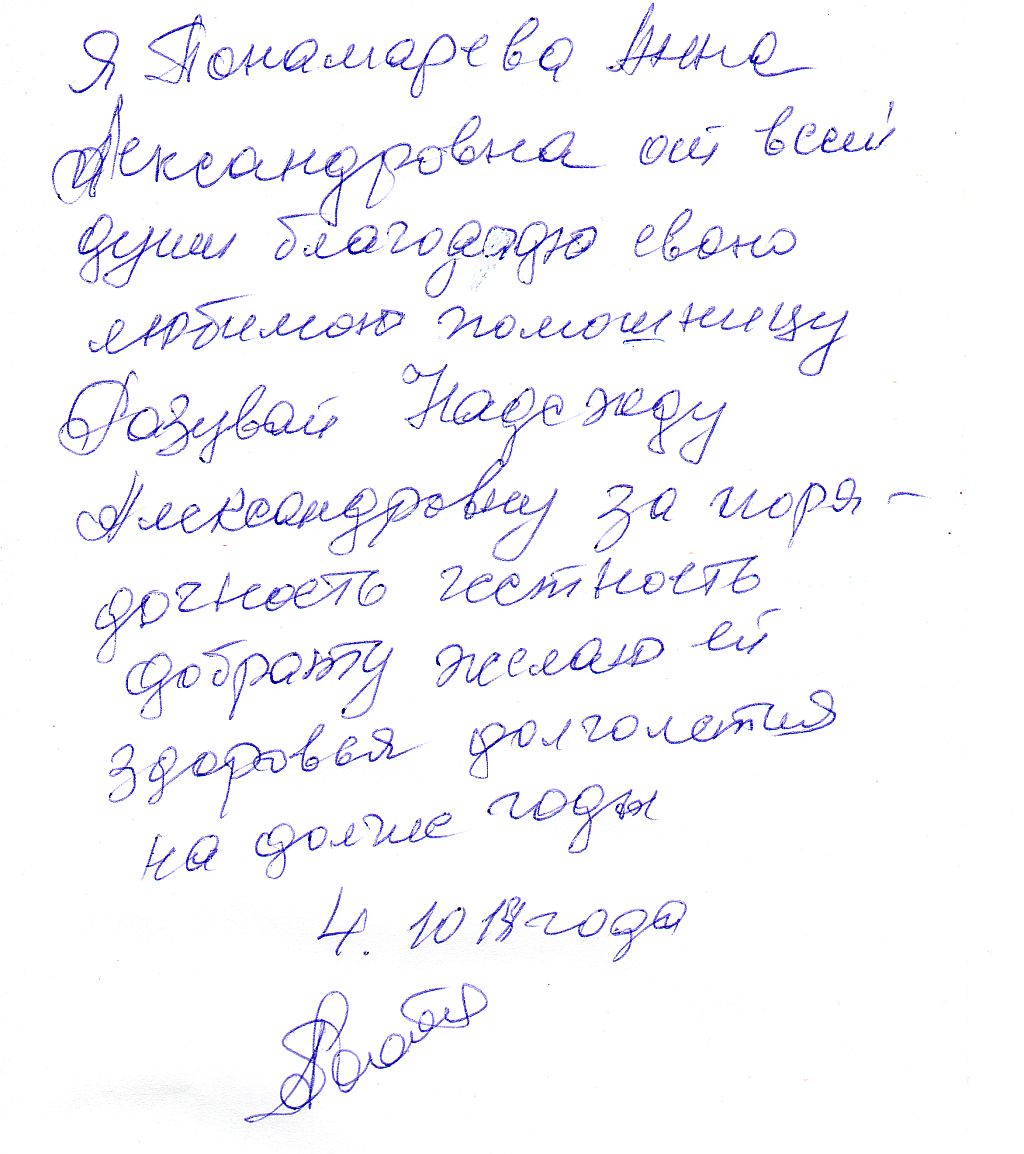 Я Понамарева Анна
Александровна от всей
души благодадю свою
любимою помошницу
Разувай Надежду
Александровну за поря-
дочность честность
добрату желаю ей
здоровья долголетия
на долгие годы
4. 10 года